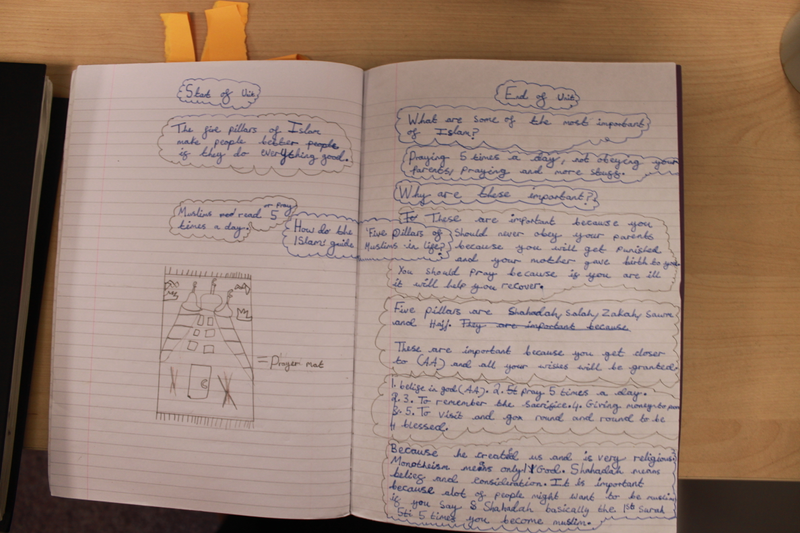 Start of Unit
The five pillars of Islam
make people better people
is they do everything good.
or pray
Muslims read 5
times a day.
How do the 'Five Pillars of
Islam' guide Muslims in life?
= Prayer mat
End of Unit
What are some of the most important
of Islam?
Praying 5 times a day, not obeying your
parents, Praying and more stuff.
Why are these important?
To These are important because you
Should never obey your parents
because you will get punised
and your mother gave birth to you
You should pray because is you are ill
it will help you recover.
Five pillars are Shahadah, Salah, Zakah, Sawm
and Hajj. They are important because
These are important because you get closer
to (AA) and all your wises will be granted.
1. belife in god (AA). 2. St pray 5 times a day.
2. 3. To remember the sacrifice. 4. Giving money to poor
& 5. To visit and goa round and round to be
blessed.
Because he created us and is very religious.
Monotheism means only 1 God. Shahadah means
belief and consideration. It is important
because alot of people might want to be muslim
is you say Shahadah basically the 1st Surah
5 times you become muslim.